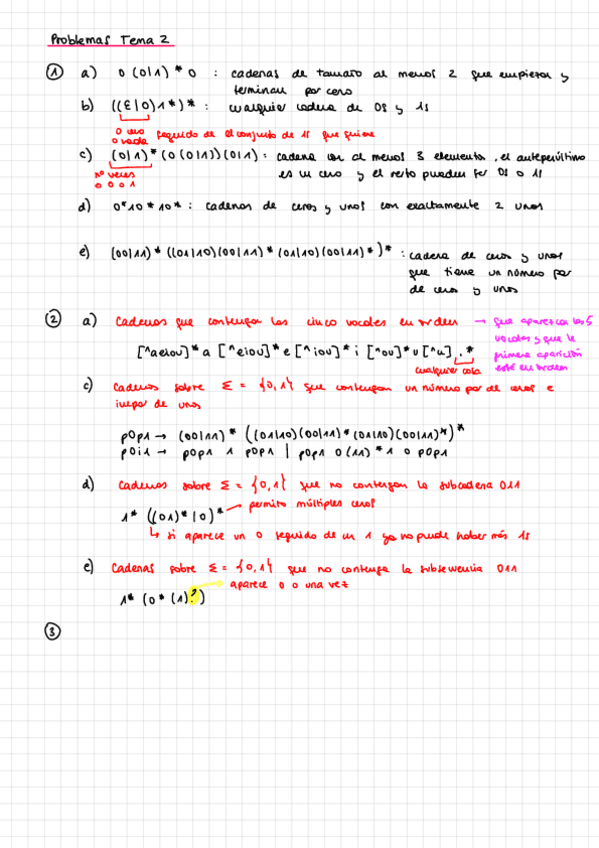 Problemas Tema 2
① a) 0 (0|1)*0 : cadenas de tamaño al menos 2 que empiezan y
terminan por cero
b) ((ε|0)1*)* : cualquier cadena de 0s y 1s
0 cero
0 nada seguido de el conjunto de 1s que quiera
c) (0|1)*(0(0|1))(0|1) : cadena con al menos 3 elementos, el antepenúltimo
es un cero y el resto pueden ser 0s o 1s
n veces
0 o 1
d) 0*10*10* : cadenas de ceros y unos con exactamente 2 unos
e) (00|11)*((01|10)(00|11)*(01|10)(00|11)*)* : cadena de ceros y unos
que tiene un número par
de ceros y unos
② a) Cadenas que contengan las cinco vocales en orden → que aparezcan las 5
vocales y que la
primera aparición
esté en orden
[^aeiou]*a[^eiou]*e[^iou]*i[^ou]*u[^u].*
cualquier cosa
c) Cadenas sobre Σ = {0,1} que contengan un número par de ceros e
impar de unos
p0p1 → (00|11)*((01|10)(00|11)*(01|10)(00|11)*)*
p0i1 → p0p1 1 p0p1 | p0p1 0(11)*1 0 p0p1
d) Cadenas sobre Σ = {0,1} que no contengan la subcadena 011
1*((01)*|0)* permite múltiples ceros
↳ si aparece un 0 seguido de un 1 ya no puede haber más 1s
e) Cadenas sobre Σ = {0,1} que no contenga la subsecuencia 011
aparece 0 o una vez
1*(0*(1)?)
③